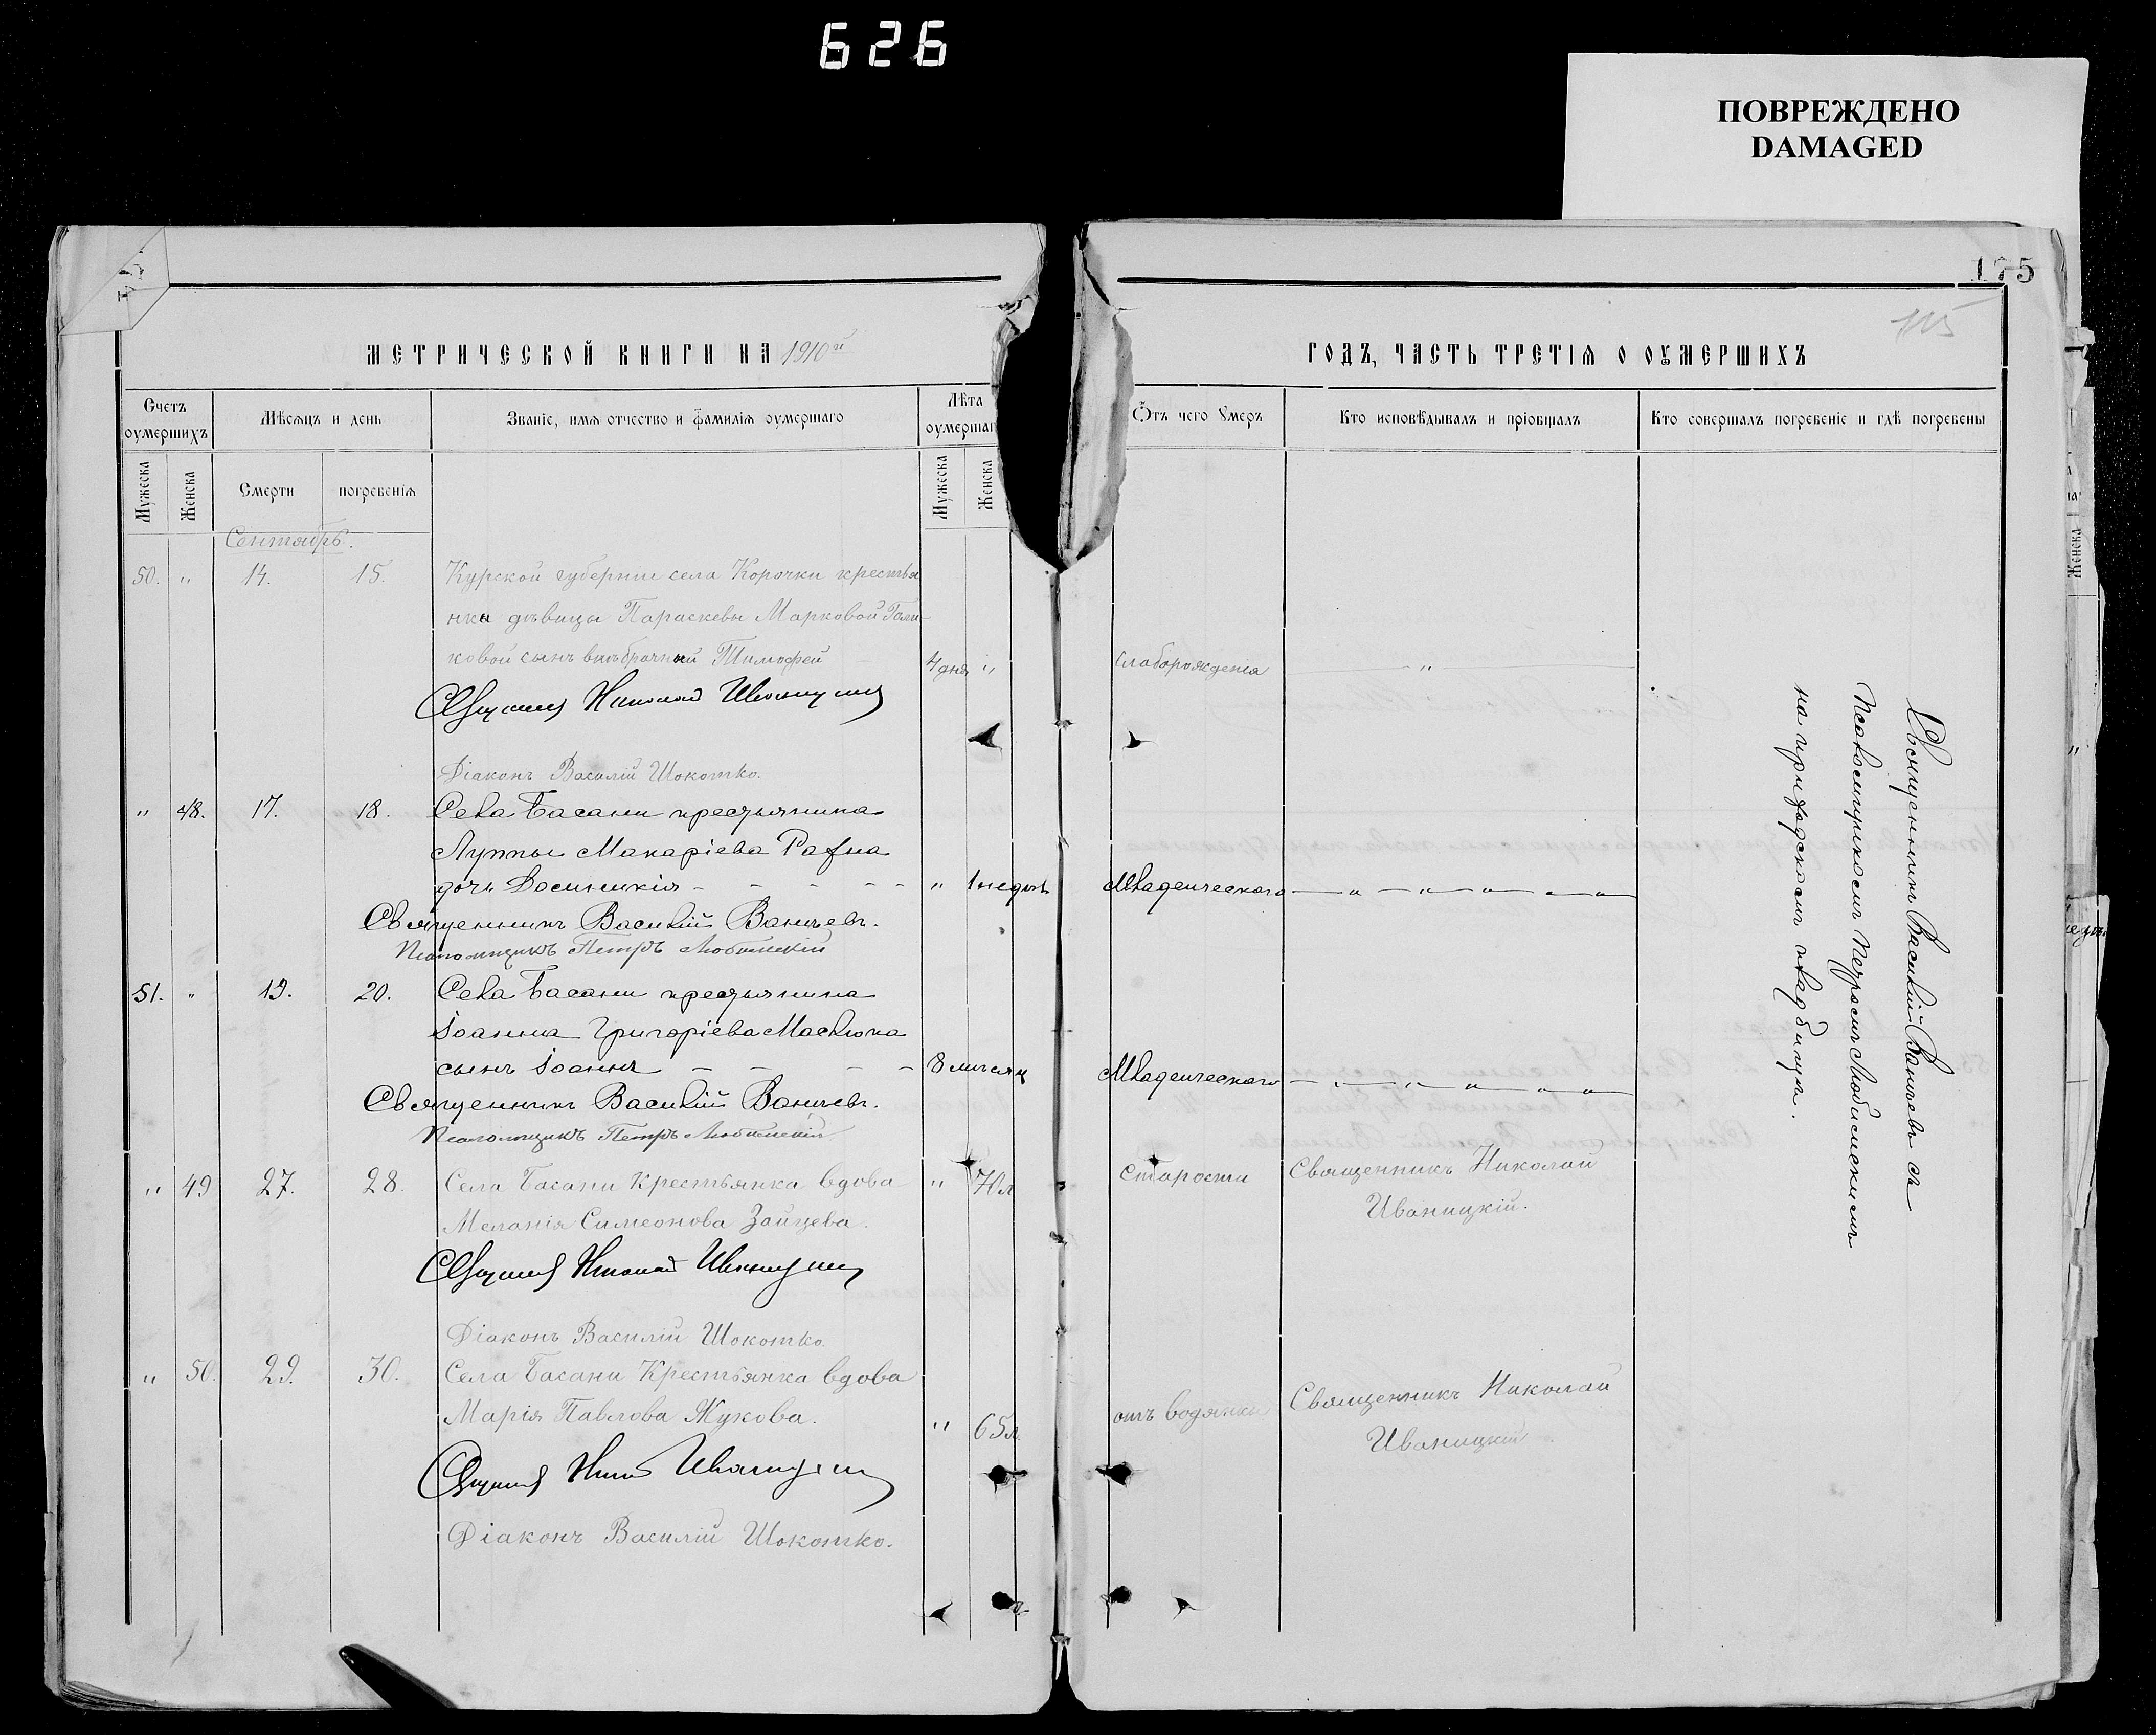 626
ПОВРЕЖДЕНО
DAMAGED
175
МЕТРИЧЕСКОЙ КНИГИ НА 1910й
ГОДЪ, ЧАСТЬ ТРЕТІѦ О ОУМЕРШИХЪ
Счетъ оумершихъ
Мѣсяцъ и день
Званіе, имя отчество и фамилія оумершаго
Лѣта
оумершаг
Ѿтъ чего Умеръ
Кто исповѣдывалъ и пріобщалъ
Кто совершалъ погребеніе и гдѣ погребены
Мужеска
Женска
Смерти
погребенія
Мужеска
Женска
Сентябрь.
50. " 14. 15. Курской губерніи села Корочки крестья
нка дѣвицы Параскевы Марковой
ковой сынъ внѣбрачный Тимофей 4 дня " слаборожденія "
Священникъ Николай Иваницкій
Діаконъ Василій Шокотко.
" 48. 17. 18. Села Басани крестьянина
Луппы Макаріева
дочь " 1 недѣль Младенческаго " " " " "
Священникъ Василій
Псаломщикъ Петръ Любимскій
51. " 19. 20. Села Басани крестьянина
Іоанна Григоріева Маслюка
сынъ Іоаннъ 8 мѣсяц Младенческаго " " " " "
Священникъ Василій
Псаломщикъ Петръ Любимскій
" 49 27. 28. Села Басани Крестьянка вдова " 70 л старости Священникъ Николай
Меланія Симеонова Зайцева. Иваницкій.
Священникъ Николай Иваницкій
Діаконъ Василій Шокотко.
" 50. 29. 30. Села Басани Крестьянка вдова Священникъ Николай
Марія Павлова Жукова. " 65 л. отъ водянки Иваницкій
Священникъ Ник Иваницкій
Діаконъ Василій Шокотко.
Священникъ Василій съ
Псаломщикомъ Петромъ Любимскимъ
на приходскомъ кладбищѣ.
Женска